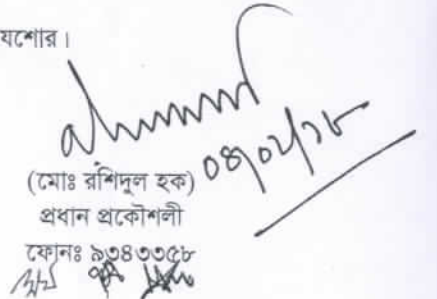 যশোর।
০৪/০২/১৮
(মোঃ রশিদুল হক)
প্রধান প্রকৌশলী
ফোনঃ ৯৩৪৩৩৫৮